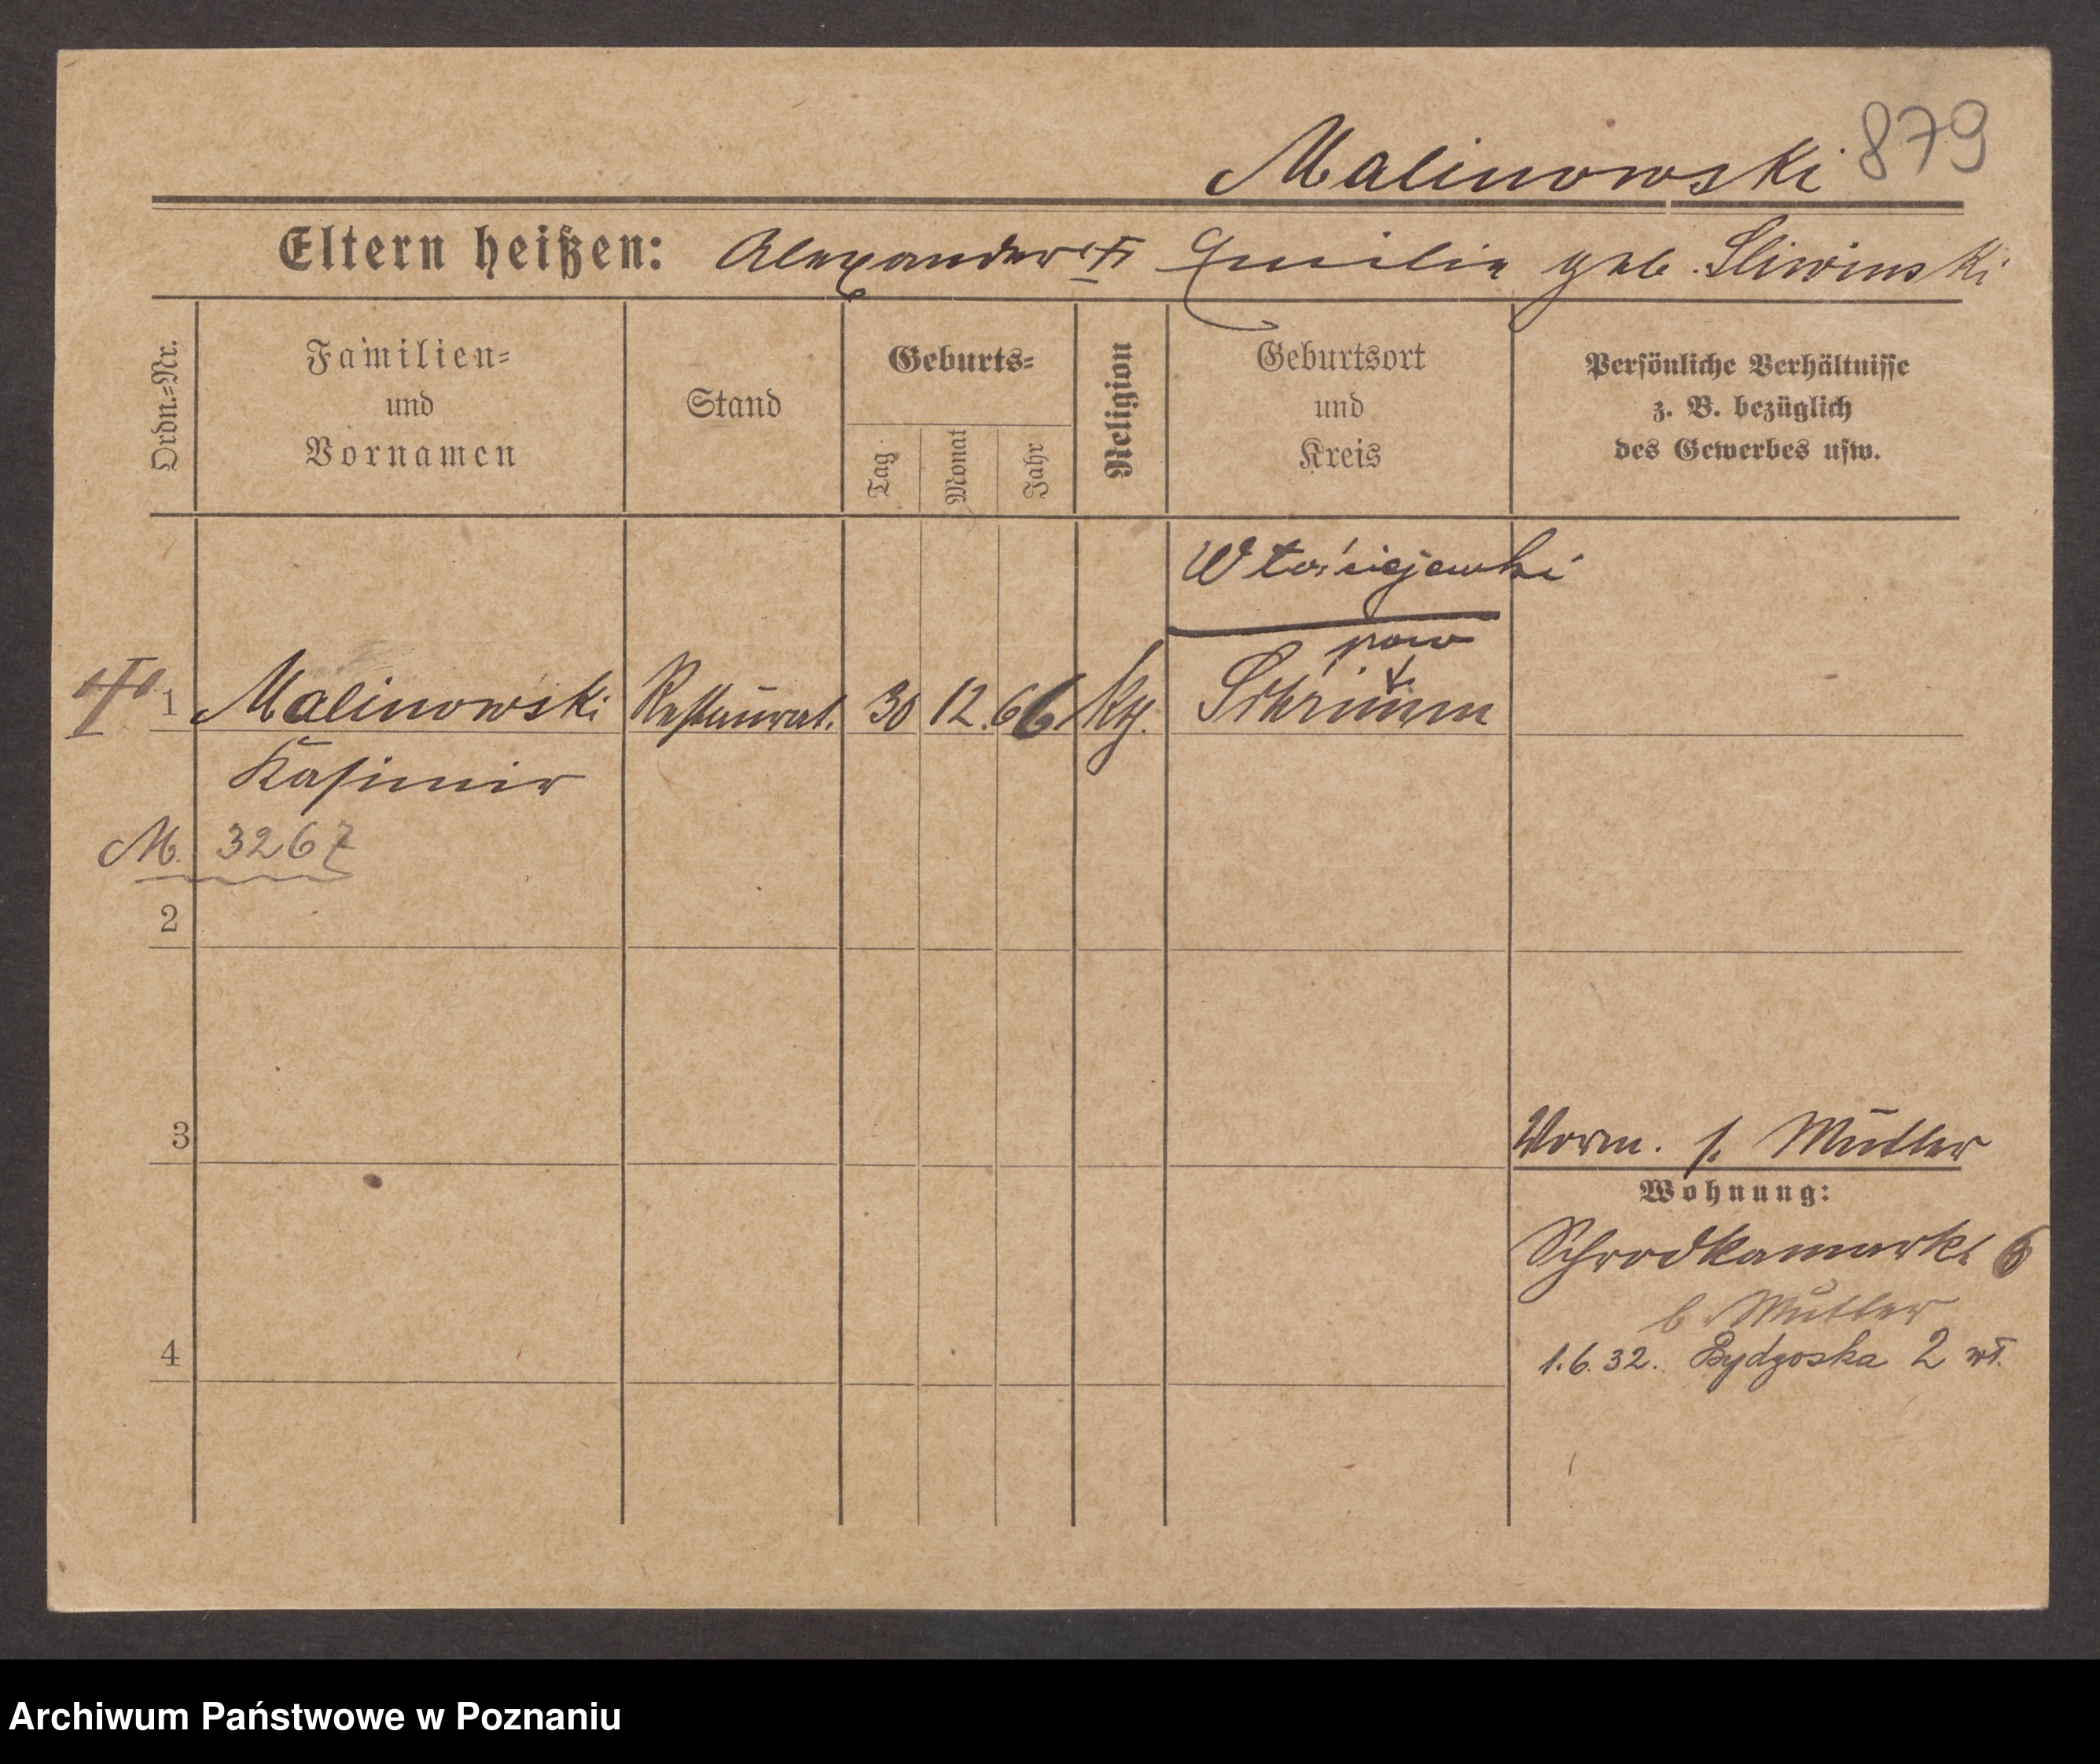 Malinowski 879
Eltern heißen: Alexander u. Emilie geb. Sliwinski
Ordn.=Nr.
Familien=
und
Vornamen
Stand
Geburts=
Tag
Monat
Jahr
Religion
Geburtsort
und
Kreis
Persönliche Verhältnisse
z. B. bezüglich
des Gewerbes usw.
Włościejewki
pow
1 Malinowski Restaurat. 30 12. 66 Schrimm
Kasimir
M. 3267
2
3
Vorm. s. Mutter
Wohnung:
Schrodkamarkt 6
b Mutter
4
1.6.32. Bydgoska 2 wł.
Archiwum Państwowe w Poznaniu